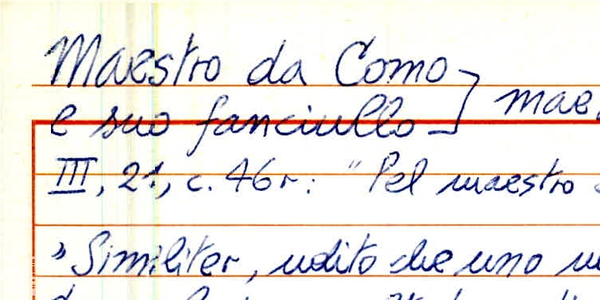 Maestro da Como
e suo fanciullo] mae
III, 21, c. 46r: "Pel maestro
"Similiter, udito che uno